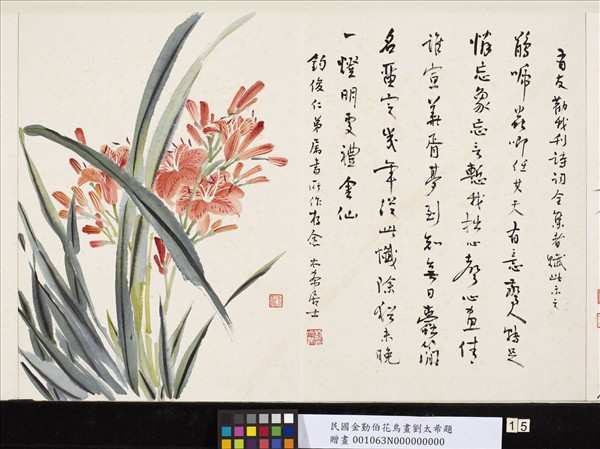 有友勸我刊詩詞全集者賦此示之
鵑啼蟲唧任其天有意驚人殊足
忘象忘言慙我拙心聲心畫倩
誰宣華胥夢到知無日蠹簡
名定幾年從此懺除猶未晚
一燈明禮金仙
鈞俊仁弟屬書所作存念 太希居士
民國金勤伯花鳥畫劉太希題
贈畫 001063N000000000
15